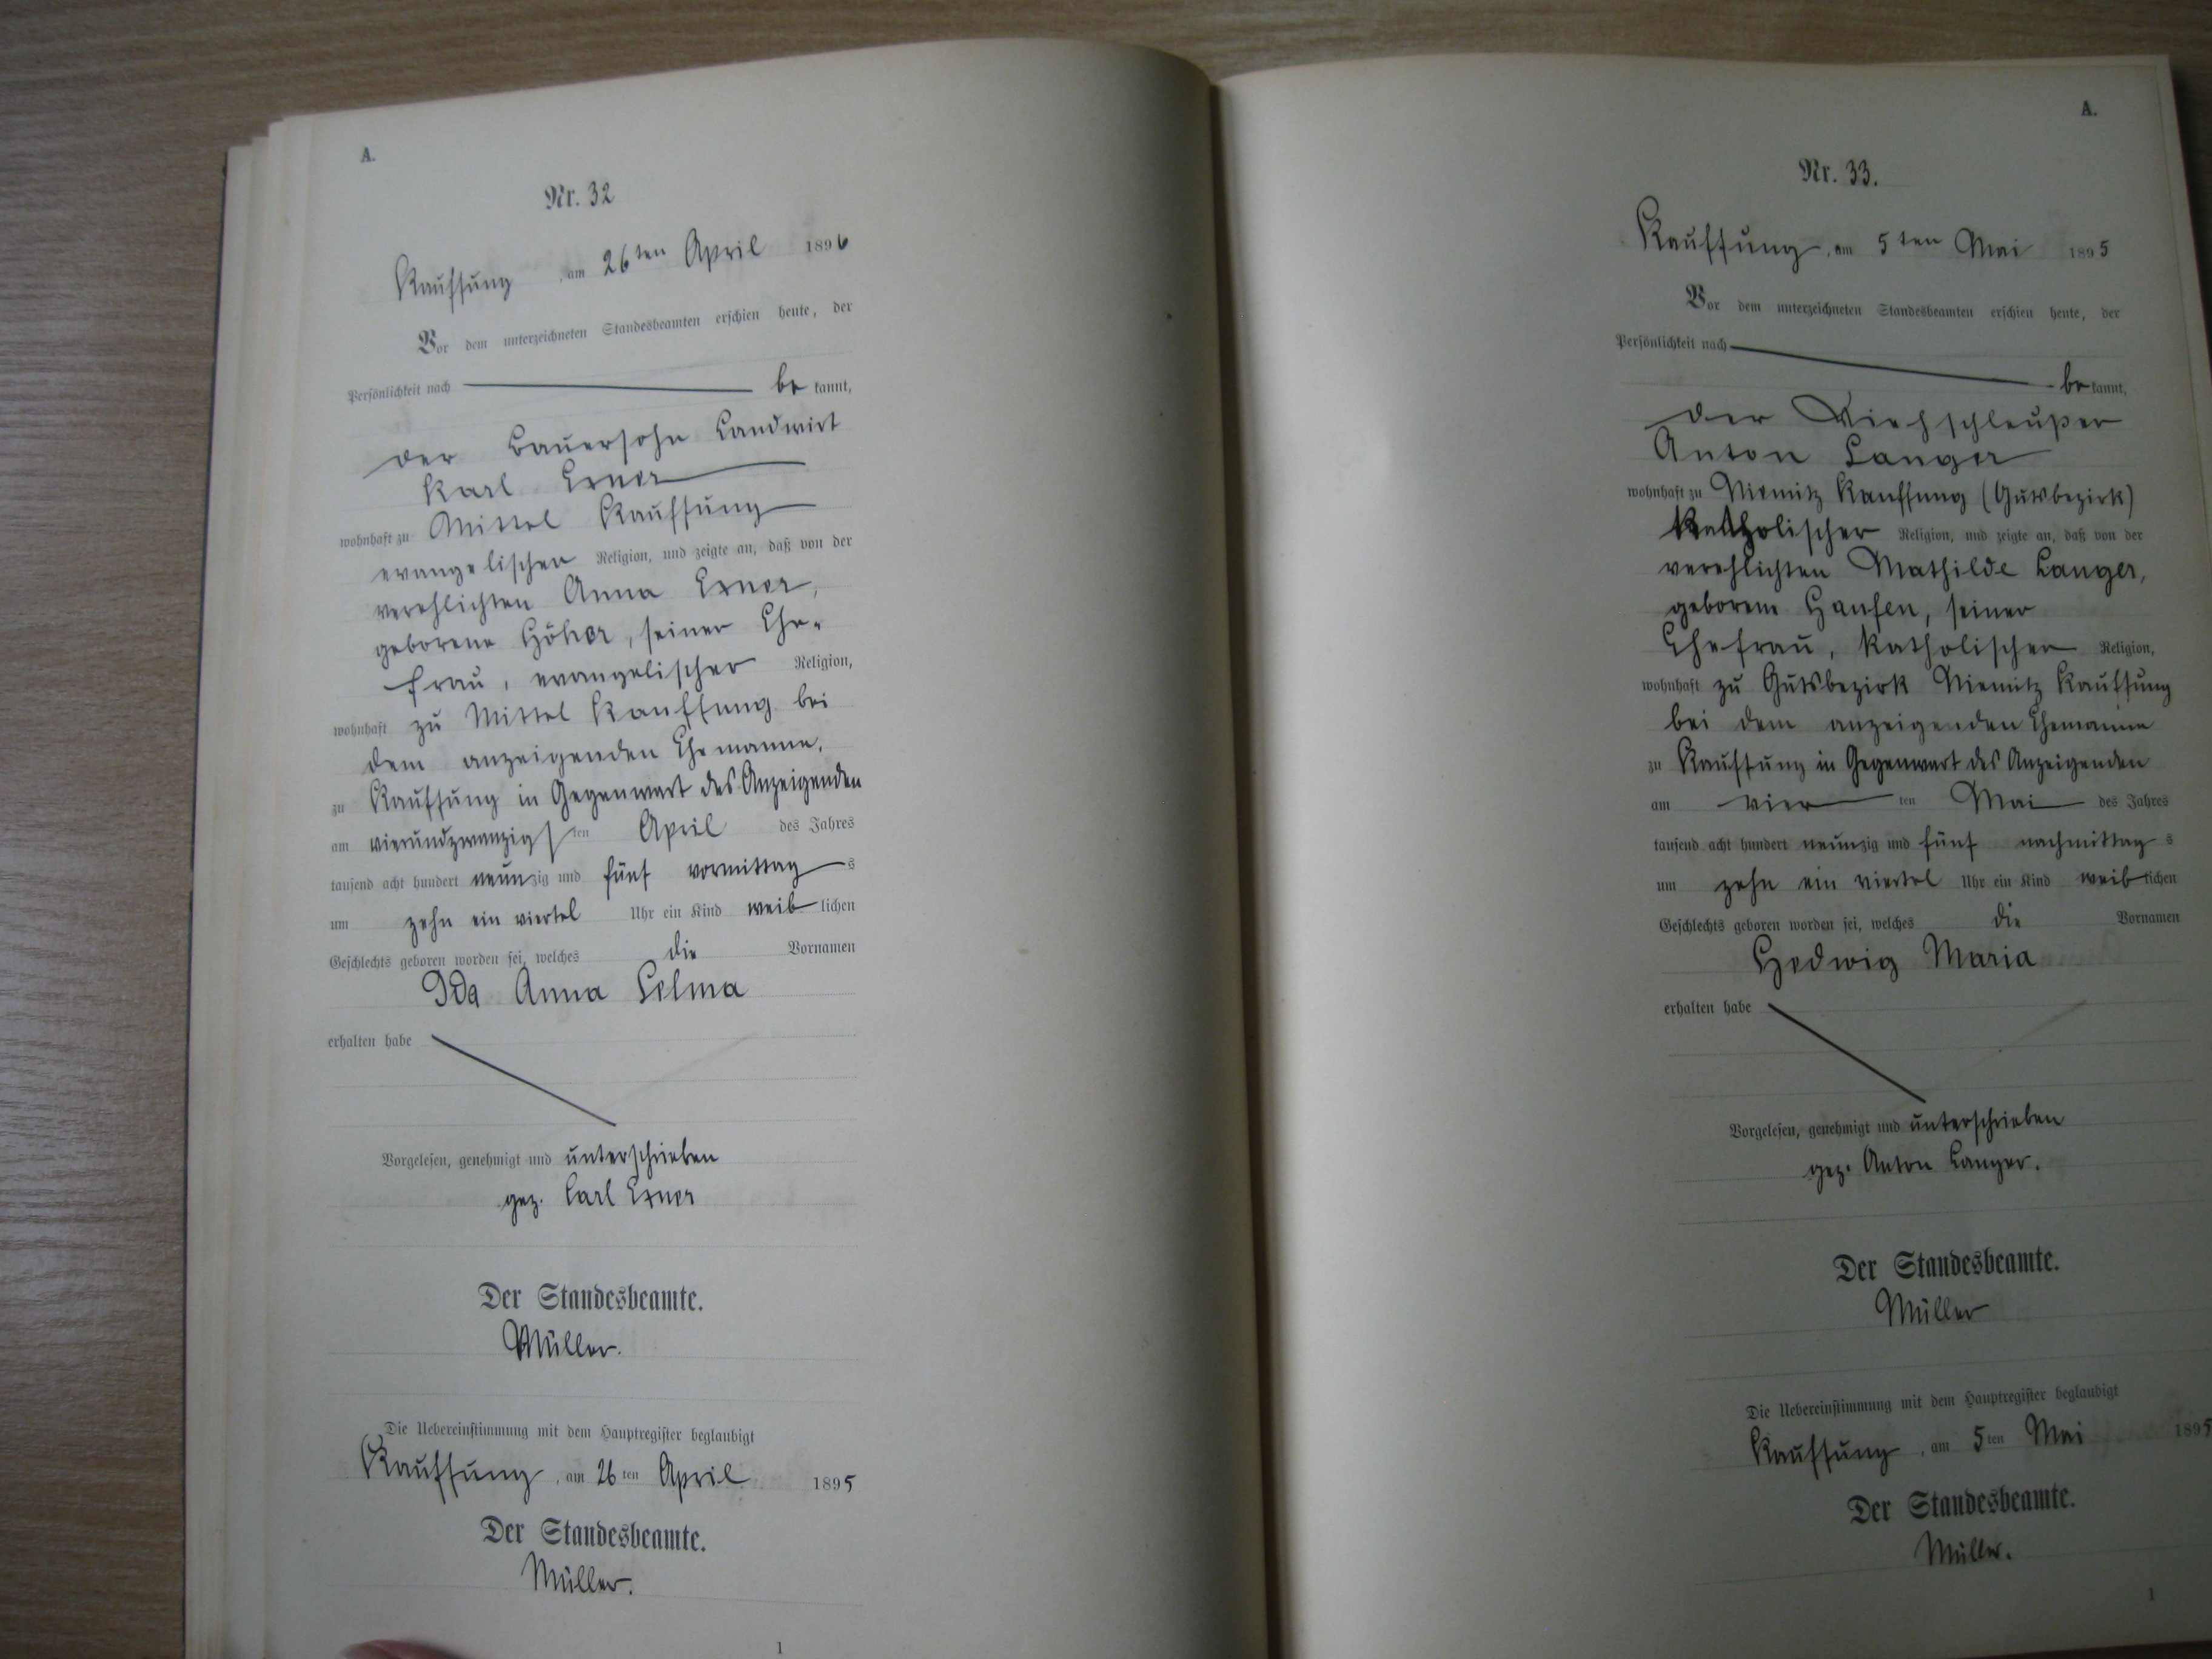 A.
Nr. 32
Kauffung, am 26ten April 1896
Vor dem unterzeichneten Standesbeamten erschien heute, der
Persönlichkeit nach be kannt,
der Bauersohn Landwirt
Karl Exner
wohnhaft zu Mittel Kauffung
evangelischen Religion, und zeigte an, daß von der
verehlichten Anna Exner,
geborene, seiner Ehe-
frau, evangelischer Religion,
wohnhaft zu Mittel Kauffung bei
dem anzeigenden Ehemanne,
zu Kauffung in Gegenwart des Anzeigenden
am vierundzwanzigsten April des Jahres
tausend acht hundert neunzig und fünf vormittags
um zehn ein viertel Uhr ein Kind weiblichen
Geschlechts geboren worden sei, welches die Vornamen
Ida Anna Selma
erhalten habe
Vorgelesen, genehmigt und unterschrieben
gez. Carl Exner
Der Standesbeamte.
Müller.
Die Uebereinstimmung mit dem Hauptregister beglaubigt
Kauffung, am 26ten April 1895
Der Standesbeamte.
Müller.
1
A.
Nr. 33.
Kauffung, am 5ten Mai 1895
Vor dem unterzeichneten Standesbeamten erschien heute, der
Persönlichkeit nach bekannt,
der Viehschleußer
Anton Langer
wohnhaft zu Niemitz Kauffung (Gutsbezirk)
katholischer Religion, und zeigte an, daß von der
verehlichten Mathilde Langer,
geborene Hansen, seiner
Ehefrau, katholischen Religion,
wohnhaft zu Gutsbezirk Niemitz Kauffung
bei dem anzeigenden Ehemanne
zu Kauffung in Gegenwart des Anzeigenden
am vierten Mai des Jahres
tausend acht hundert neunzig und fünf nachmittags
um zehn ein viertel Uhr ein Kind weiblichen
Geschlechts geboren worden sei, welches die Vornamen
Hedwig Maria
erhalten habe
Vorgelesen, genehmigt und unterschrieben
gez. Anton Langer.
Der Standesbeamte.
Müller
Die Uebereinstimmung mit dem Hauptregister beglaubigt
Kauffung, am 5ten Mai 1895
Der Standesbeamte.
Müller.
1